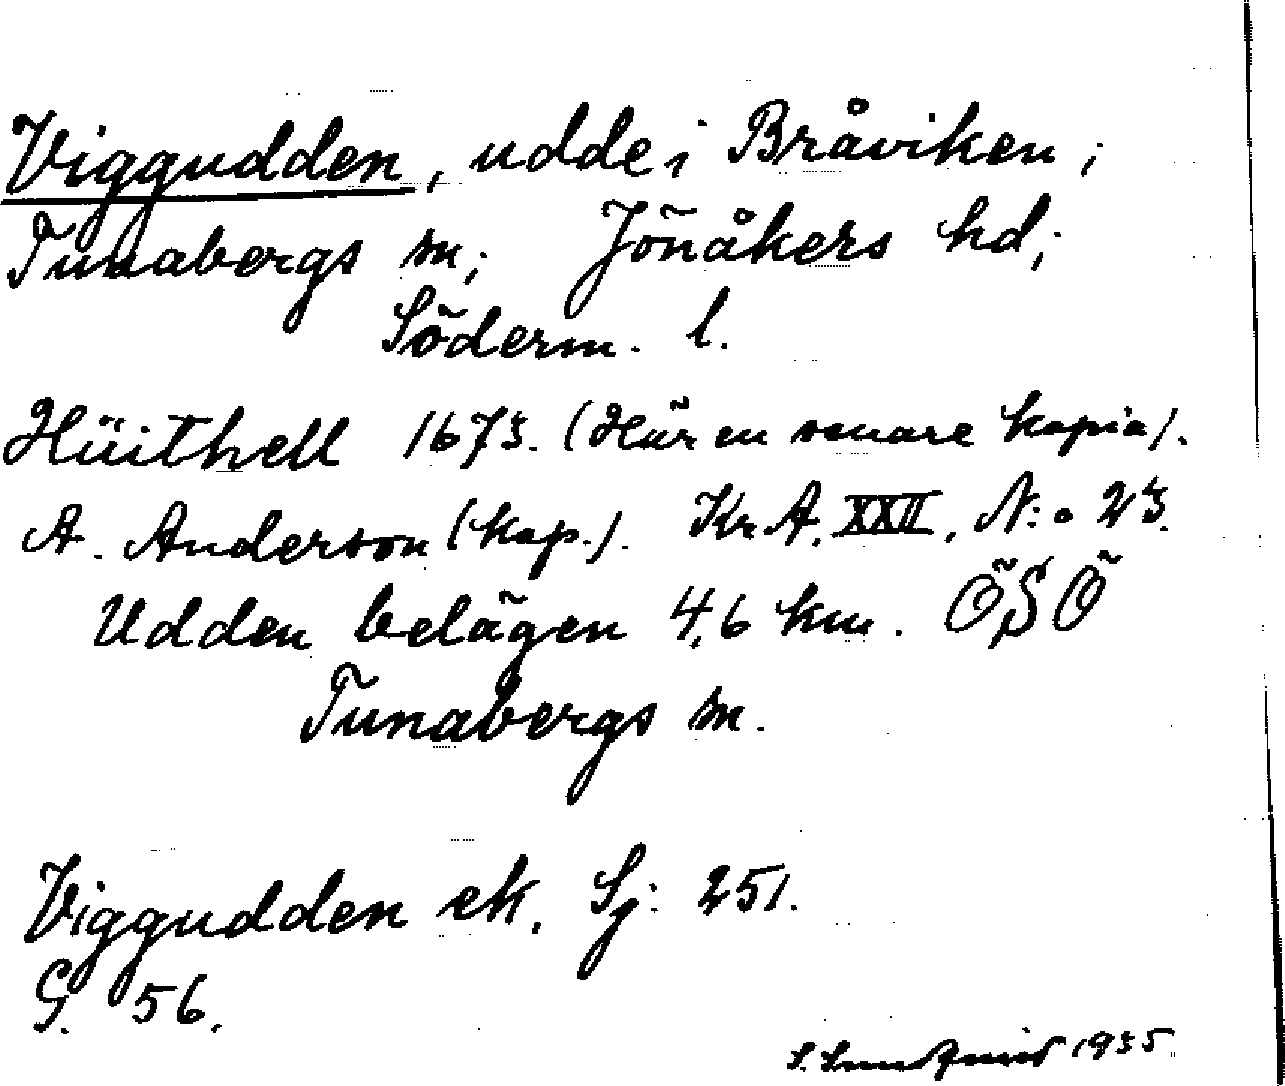 Viggudden, udde i Bråviken;
Tunabergs sn; Jönåkers hd;
Söderm. l.
Hüithell 1673. (Här en senare kopia).
A. Anderson (kop.). Kr. A. XXII, N:o 23.
Udden belägen 4,6 km. ÖSÖ
Tunabergs sn.
Viggudden ek. Sj: 251.
G. 56.
S. Lundqvist 1935